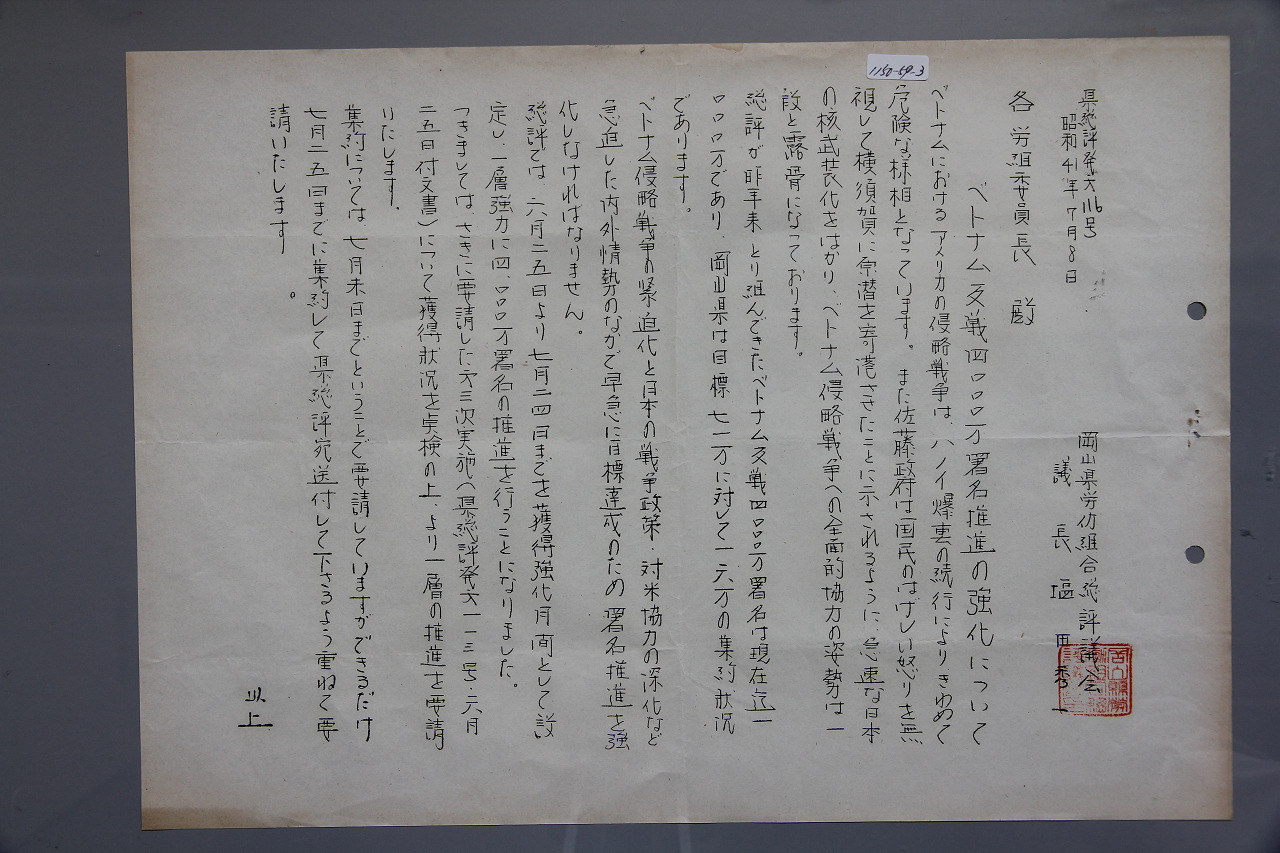 1150-59-3
県総評発文116号
昭和41年7月8日
岡山県労仂組合総評議会
議長 塩田秀一
各労組委員長 殿
ベトナム反戦四〇〇〇万署名推進の強化について
ベトナムにおけるアメリカの侵略戦争は、ハノイ爆裏の続行によりきわめて
危険な様相となっています。また佐藤政府は国民のはげしい怒りを無
視して横須賀に原潜を寄港させたことに示されるように、急速な日本
の核武装化をはかり、ベトナム侵略戦争への全面的協力の姿勢は一
段と露骨になっております。
総評が昨年来とり組んできたベトナム反戦四〇〇〇万署名は現在迄一
〇〇〇万であり、岡山県は目標七一万に対して一六万の集約状況
であります。
ベトナム侵略戦争の緊迫化と日本の戦争政策・対米協力の深化など
急迫した内外情勢のなかで早急に目標達成のため署名推進を強
化しなければなりません。
総評では、六月二五日より七月二四日までを獲得強化月间として設
定し、一層強力に四、〇〇〇万署名の推進を行うことになりました。
つきましては、さきに要請した第三次実施(県総評発文一一三号・六月
二五日付文書)について獲得状況を点検の上、より一層の推進を要請
いたします。
集約については、七月末日までということで要請していますができるだけ
七月二五日までに集約して県総評宛送付して下さるよう重ねて要
請いたします。
以上